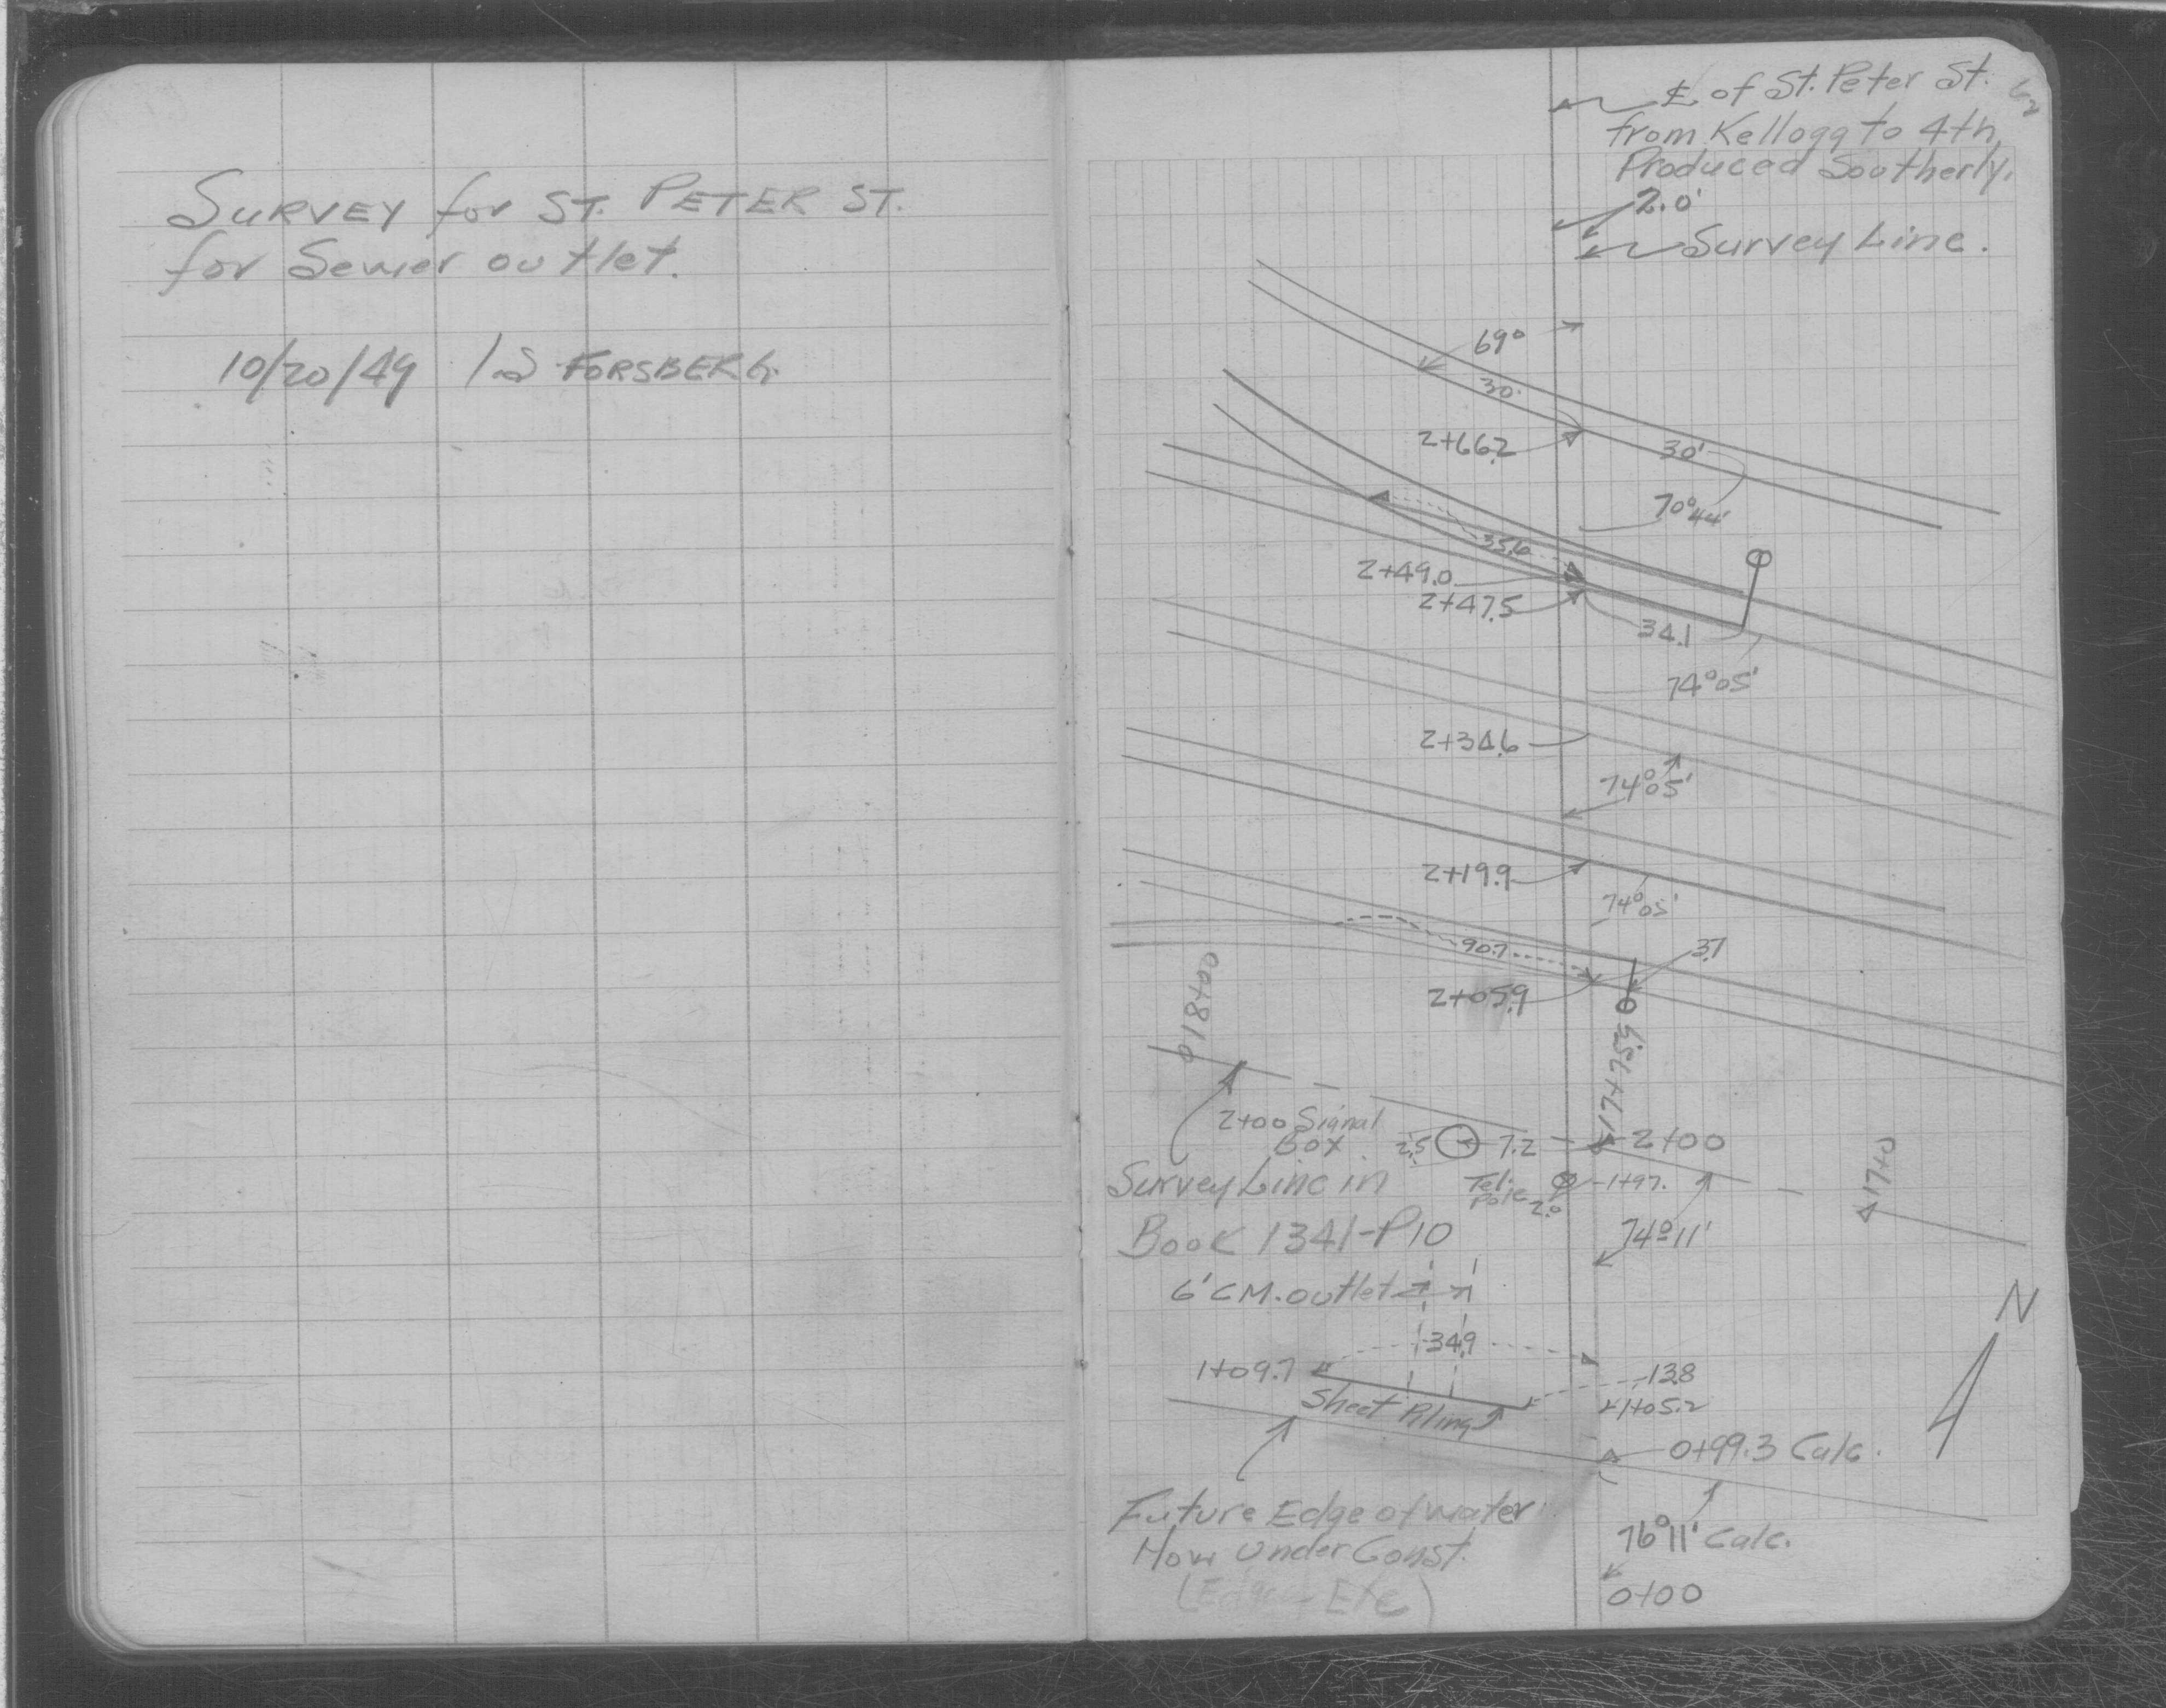 SURVEY for ST. PETER ST.
for Sewer outlet.
10/20/49 FORSBERG.
62
℄ of St. Peter St.
from Kellogg to 4th,
Produced Southerly.
2.0'
Survey Line.
69°
30'
2+66.2
30'
70°44'
35.6
2+49.0
2+47.5
34.1
74°05'
2+34.6
74°05'
2+19.9
74°05'
90.7
3.1
2+05.9
18+00
17+75.9
2+00 Signal
Box
2.5
7.2
2+00
Survey Line in
Tel.
Pole
2.0
1+97.
17+0
Book 1341-P10
74°11'
6' CM. outlet
34.9
1+09.7
13.8
Sheet Piling
1+05.2
N
0+99.3 Calc.
Future Edge of water
Now Under Const.
76°11' Calc.
0+00